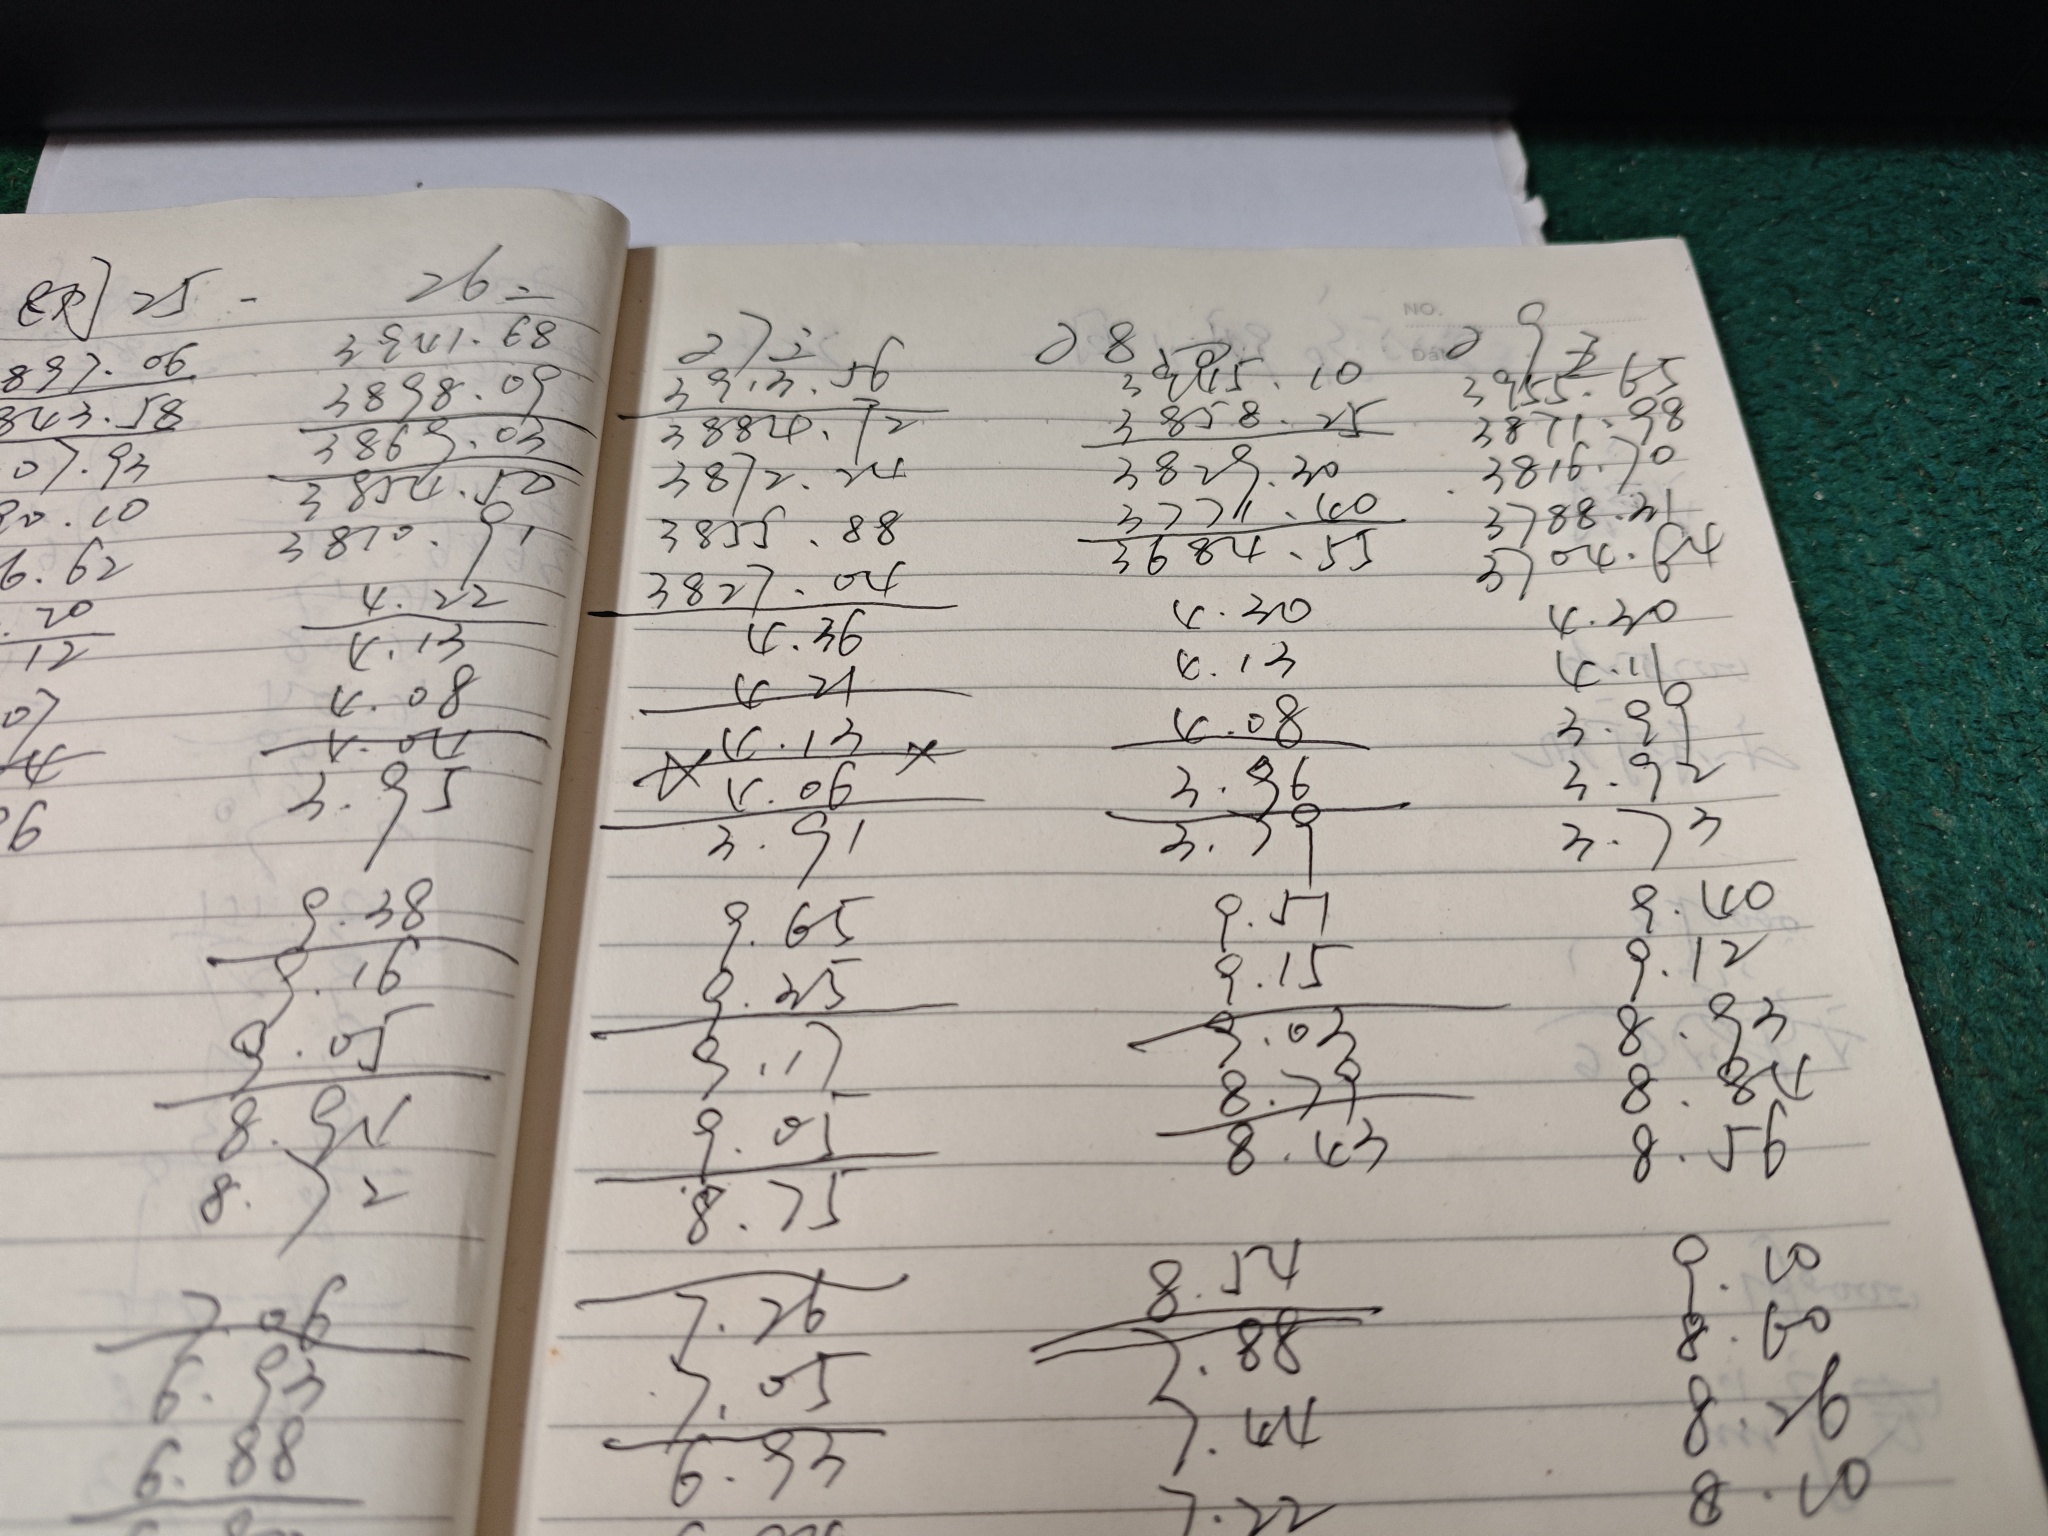 25 -
897.06
843.58
07.93
90.10
6.62
.20
12
07
4
26 二
3941.68
3898.09
3869.03
3854.50
3810.91
4.22
4.13
4.08
4.04
3.95
9.38
9.16
9.05
8.94
8.72
7.06
6.93
6.88
27 三
3913.56
3884.72
3872.24
3855.88
3827.04
4.36
4.21
4.13
4.06
3.91
9.65
9.35
9.17
9.05
8.75
7.26
7.05
6.93
28 四
3945.10
3858.25
3829.30
3771.40
3684.55
4.30
4.13
4.08
3.96
3.79
9.57
9.15
9.03
8.79
8.43
8.54
7.88
7.44
7.22
NO.
Date
29 五
3955.65
3871.98
3816.70
3788.31
3704.64
4.30
4.11
3.99
3.92
3.73
9.40
9.12
8.93
8.84
8.56
9.10
8.60
8.26
8.10